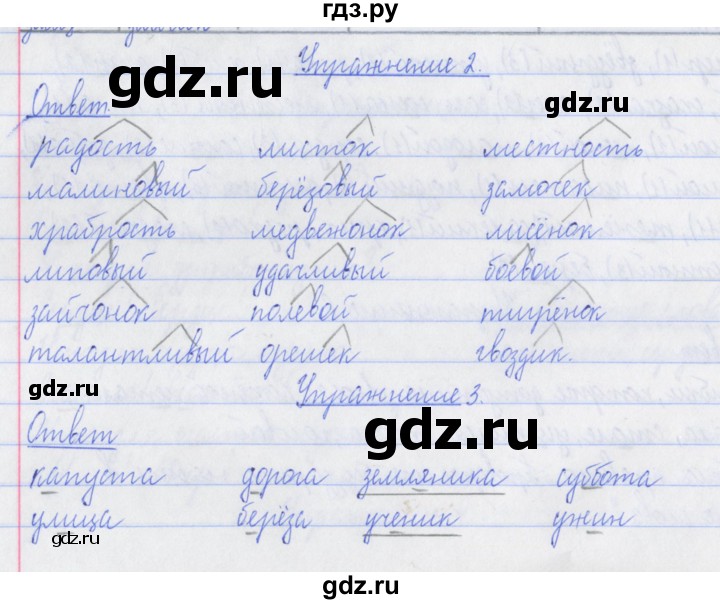 гдз.ру
Упражнение 2.
gdz.ru
gdz.ru
Ответ
радость листок местность
малиновый берёзовый замочек
храбрость медвежонок лисёнок
липовый удачливый боевой
зайчонок полевой тигрёнок
талантливый орешек гвоздик.
gdz.ru
Упражнение 3.
gdz.ru
Ответ
капуста дорога земляника суббота
улица берёза ученик ужин
gdz.ru
gdz.ru